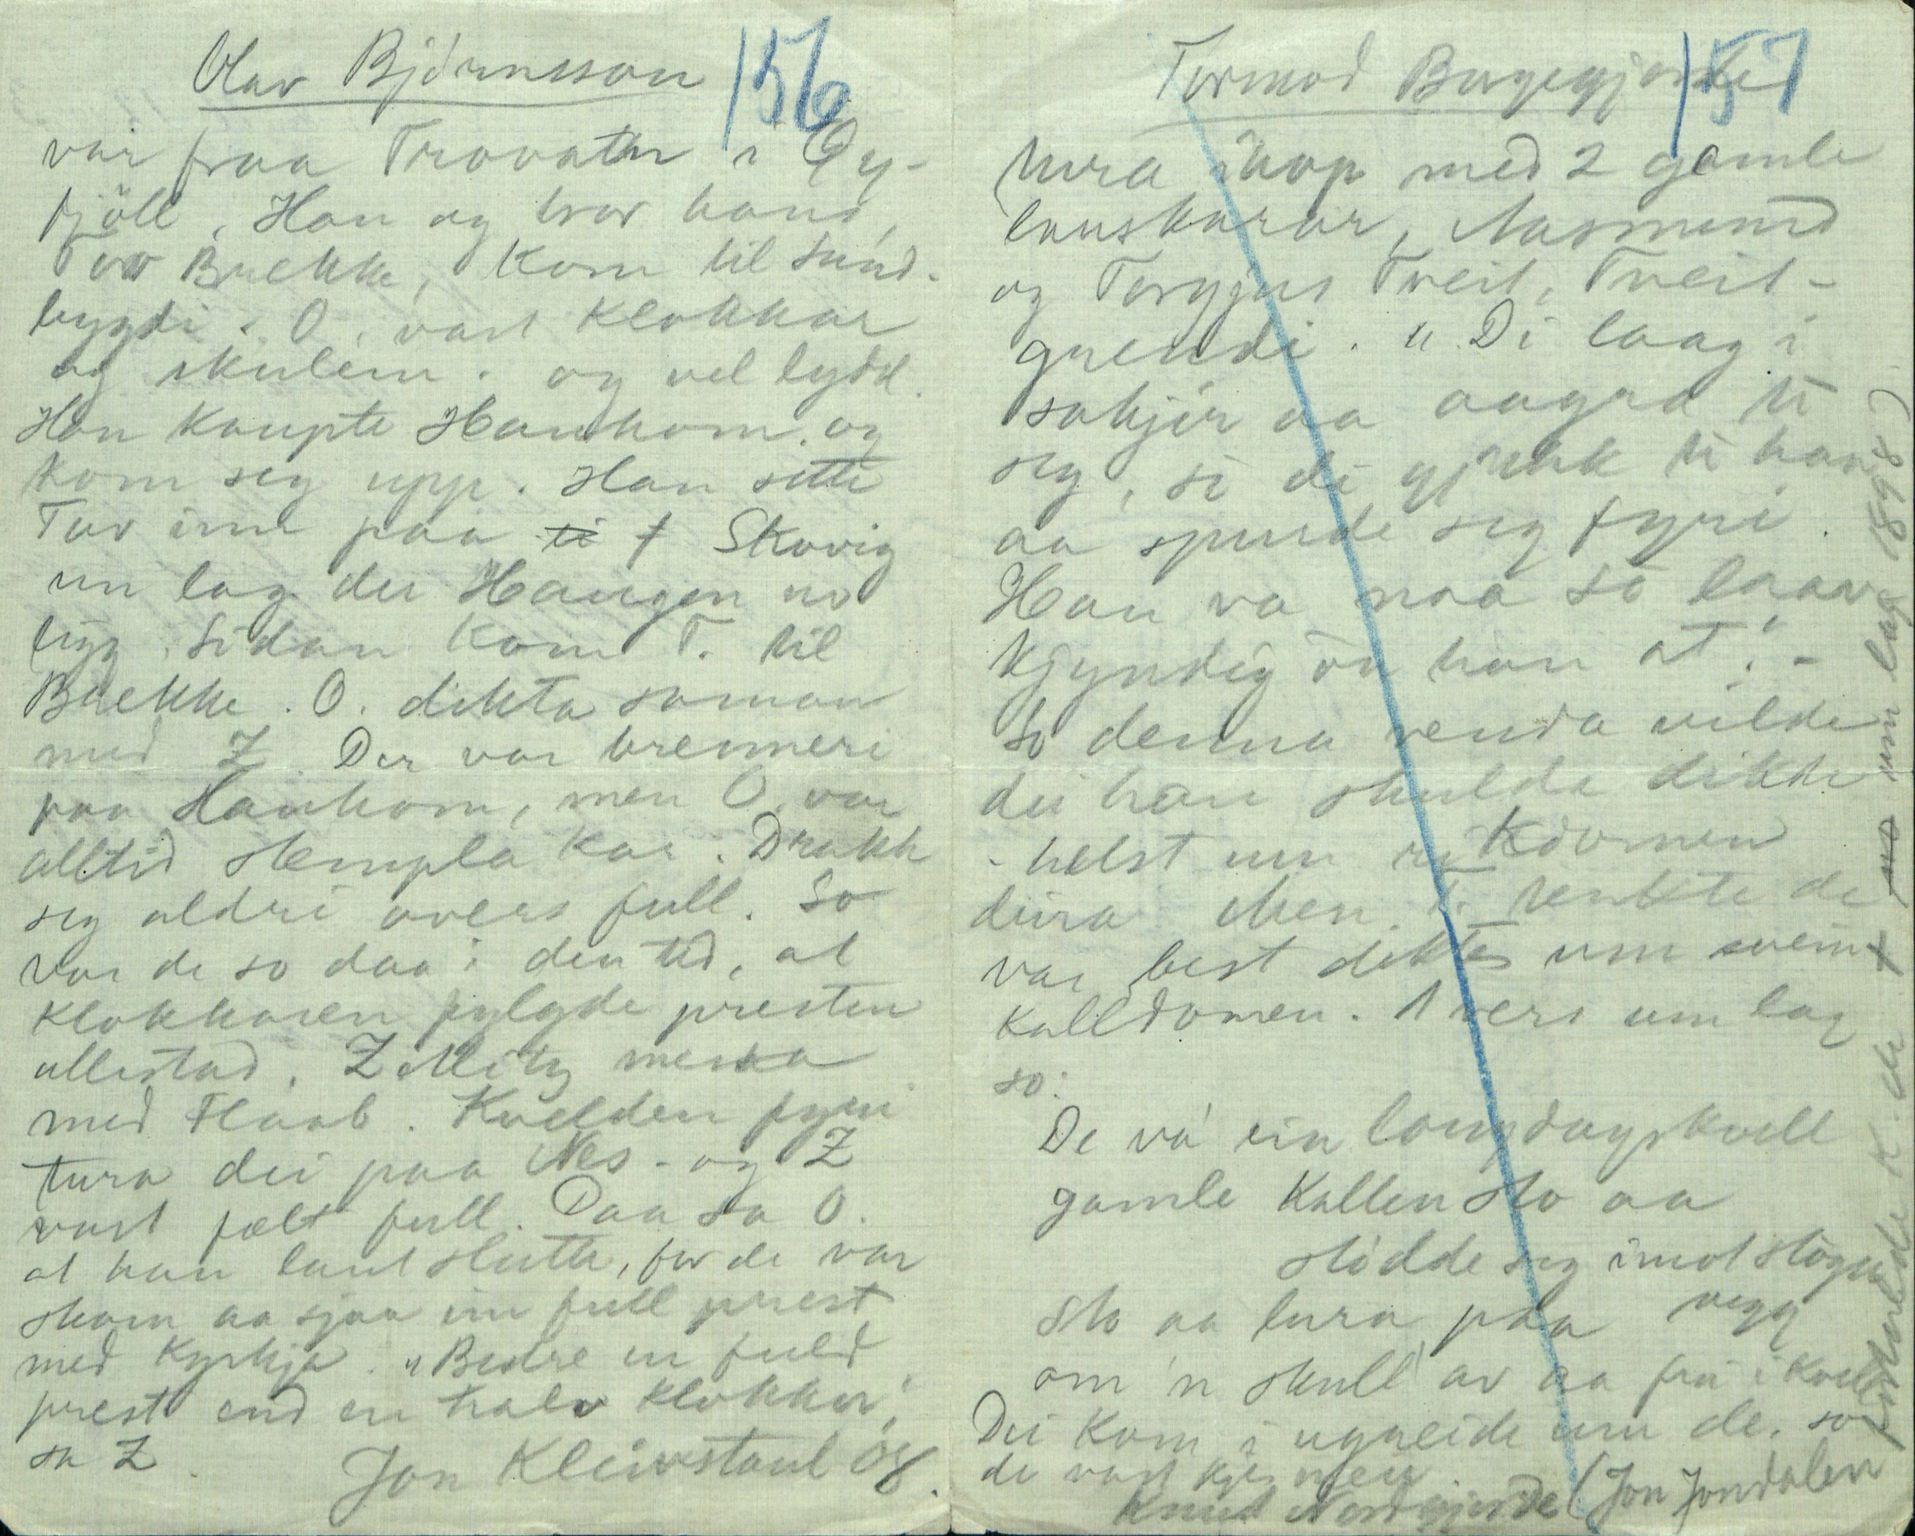 Olav Björnsson 156
var fraa Trovatn i Öy-
fjöll. Han og bror hans,
Tov Brekke, kom til Sund-
bygdi. O. vart klokkar
og skulem. og vel lydd.
Han kaupte Haukom, og
kom seg upp. Han sette
Tov inn paa ti f Skovig
um lag der Haugen no
ligg. Sidan kom T. til
Brekke. O. dikta saman
med Z. Der var brenneri
paa Haukom, men O. var
alltid stempla kar. Drakk
seg aldri overs full. So
var de so daa i den tid, at
klokkaren fylgde presten
allestad. Z Meitz messa
med Flaab. Kvelden fyri
tura dei paa Nes - og Z
vart fælt full. Daa sa O.
at han laut slutte, for de var
skam aa sjaa ein full prest
med kyrkja. "Bedre en fuld
prest end en halv klokker,"
sa Z.
Jon Kleivstaul 08.
Tormod Borgegjordet 157
hova ihop med 2 gamle
lauskarar, Aasmund
og Torgjus Tveit, Tveit-
grendi. "Di laag i
sokjir aa aagra ti
seg, si di gjekk ti han
aa spurde seg fyri.
Han va naa so laav
kjyndig 'an han at". -
So denna venda vilde
dei han skulda dikte
- helst um
deira. Men T. tenkte de
var best dikta um svein
kalldomen. 1 vers um lag
so:
De va' ein laugdagskvell
gamle kallen sto aa
stödde seg imot stogu
vegg
Sto aa lura paa
om 'n skull' av aa fri i kveld
Dei kom i ugreide um de, so
de vart kje meir.
Knut Nordgjorde (Jon Jondalen
fortalde K. de um lag 1898)